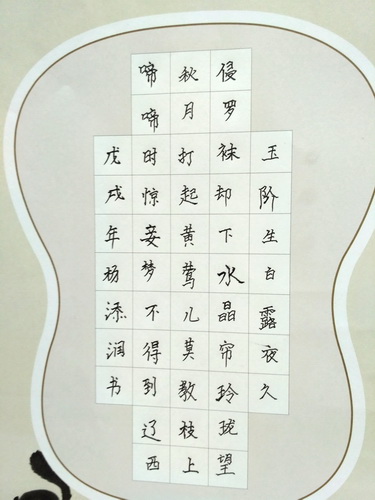 玉阶生白露夜久
侵罗袜却下水晶帘玲珑望
秋月打起黄莺儿莫教枝上
啼啼时惊妾梦不得到辽西
戊戌年杨添润书